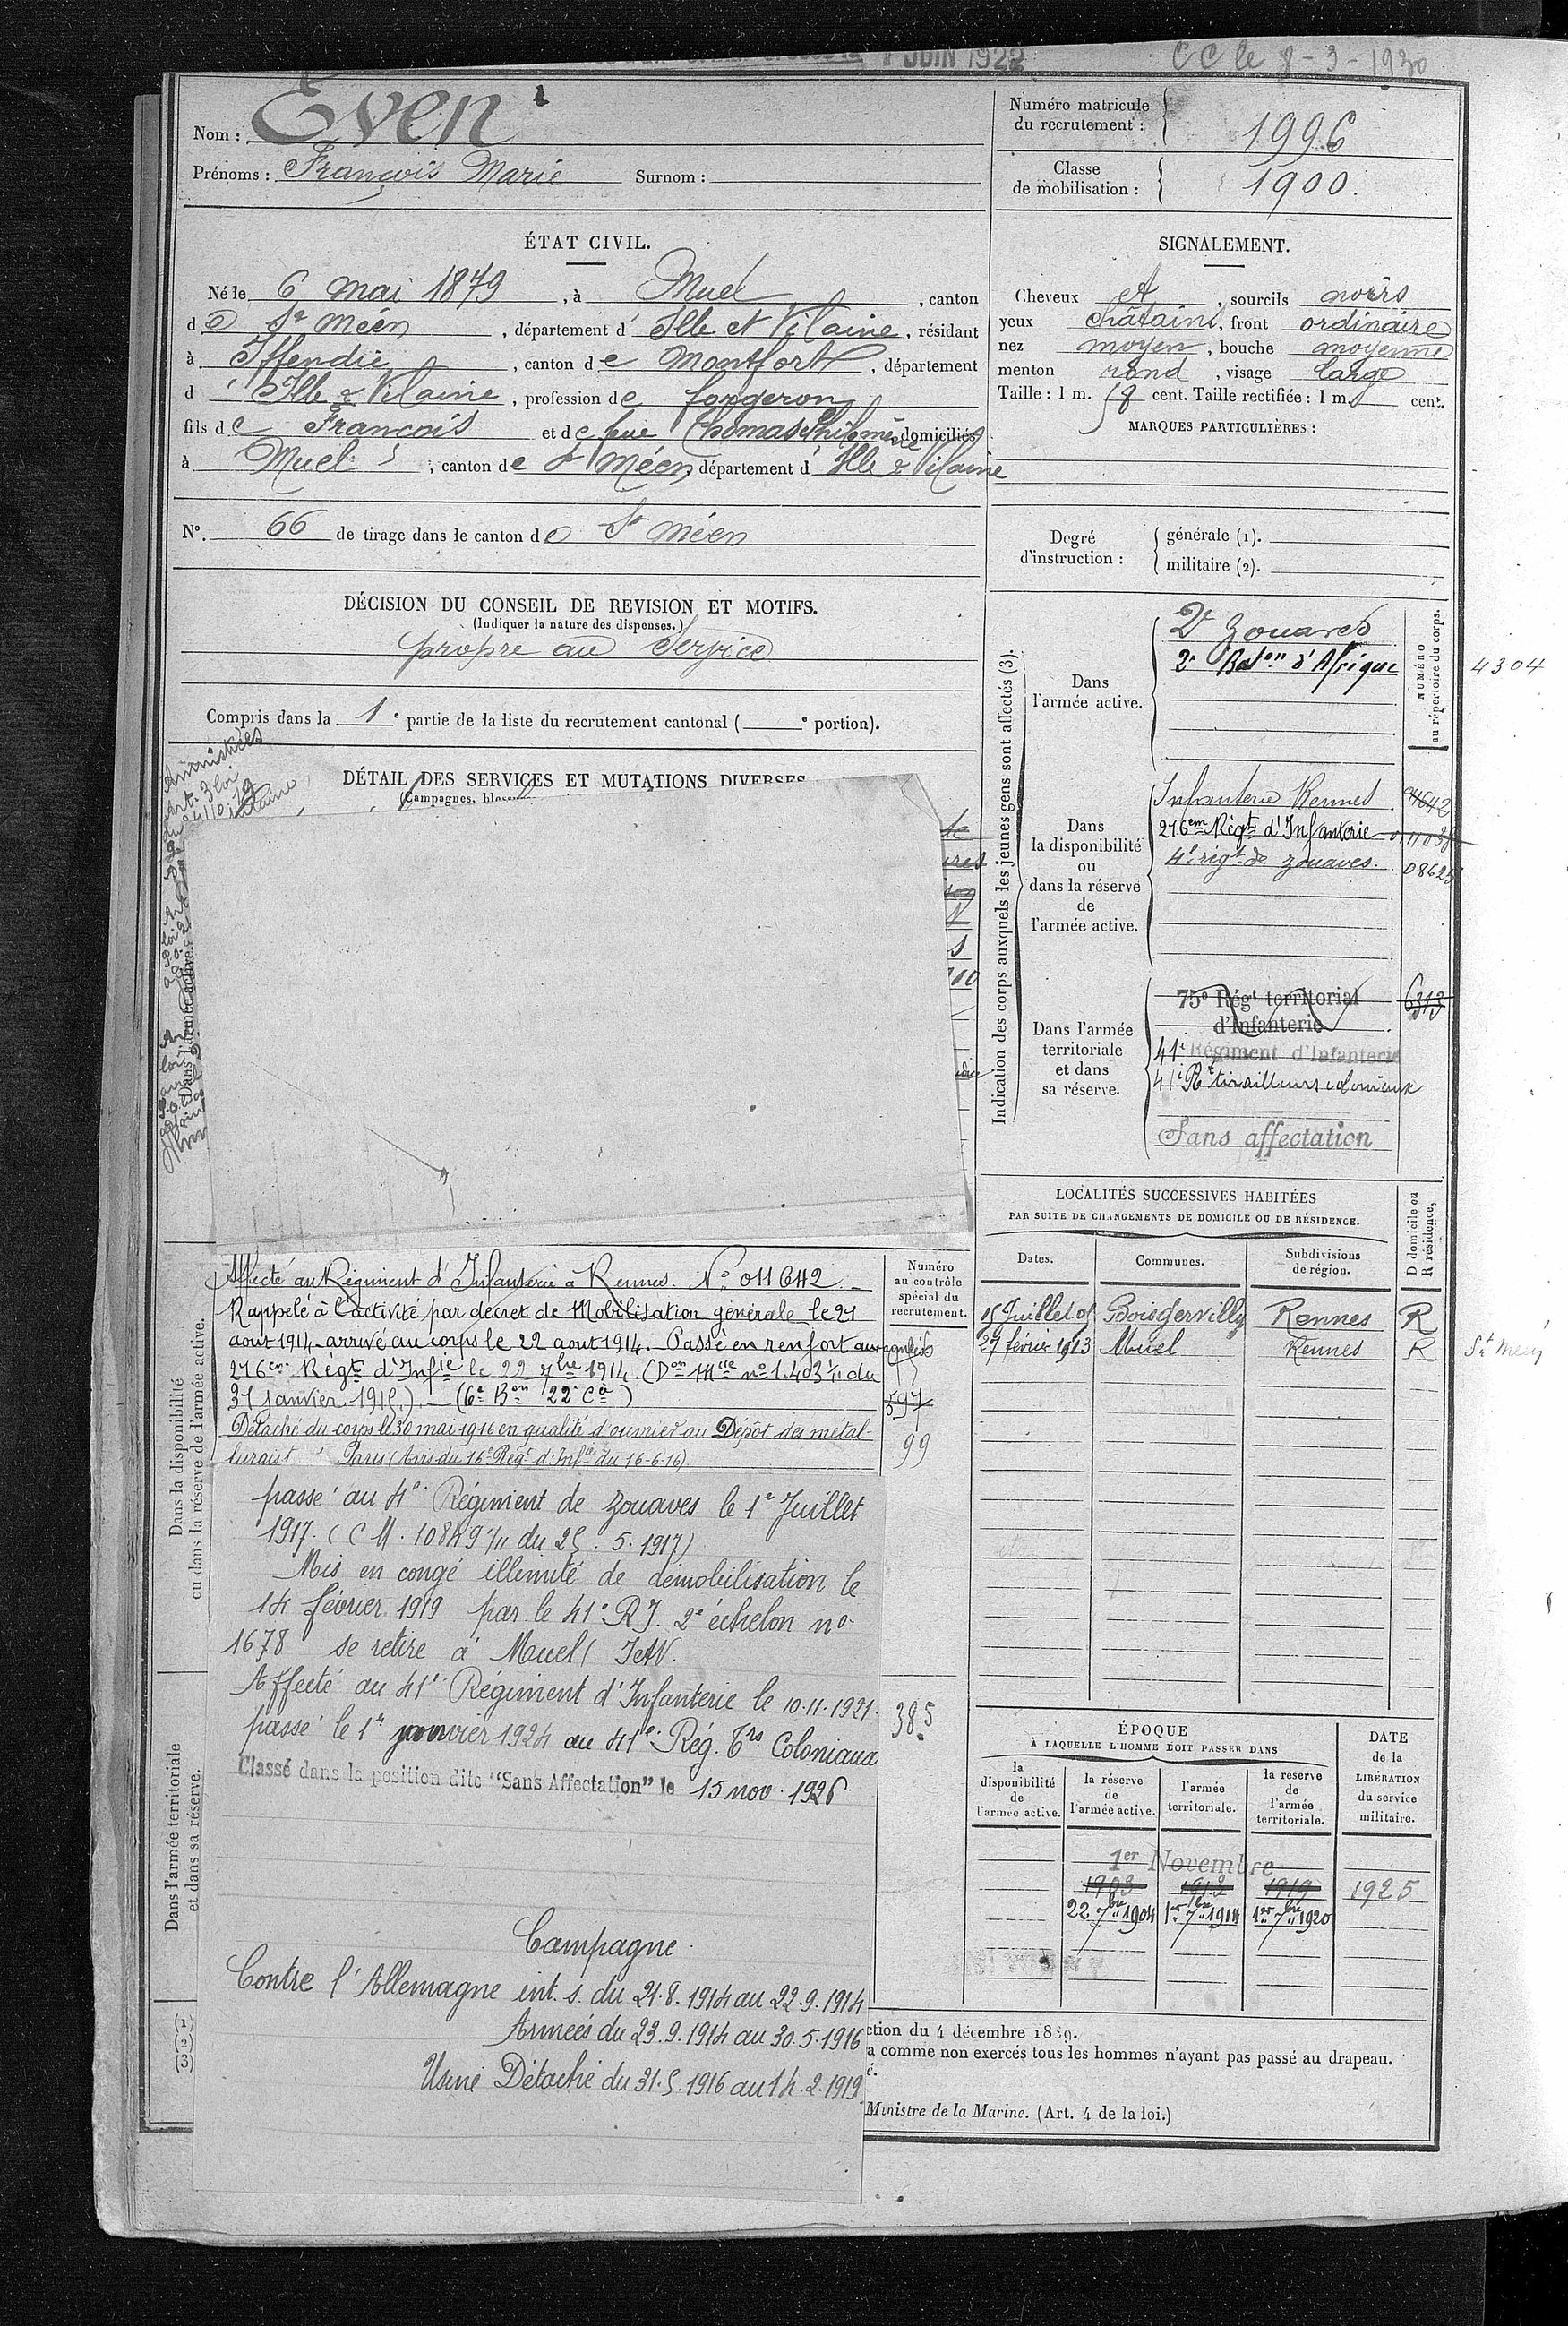 JUIN 1922
CC le 8-3-1930
Nom : Even
Prénoms : François Marie Surnom :
Numéro matricule du recrutement : 1996
Classe de mobilisation : 1900.
ÉTAT CIVIL.
Né le 6 mai 1879, à Muel, canton
de St Méen, département d' Ille et Vilaine, résidant
à Iffendic, canton de Montfort, département
d' Ille & Vilaine, profession de forgeron
fils de François et de feue Thomas Philomène domiciliés
à Muel, canton de St Méen département d' Ille & Vilaine
N°. 66 de tirage dans le canton de St Méen
SIGNALEMENT.
Cheveux et, sourcils noirs
yeux châtains, front ordinaire
nez moyen, bouche moyenne
menton rond, visage large
Taille : 1 m. 58 cent. Taille rectifiée : 1 m. cent.
MARQUES PARTICULIÈRES :
Degré d'instruction :
générale (1).
militaire (2).
DÉCISION DU CONSEIL DE REVISION ET MOTIFS.
(Indiquer la nature des dispenses.)
propre au Service
Compris dans la 1e partie de la liste du recrutement cantonal ( e portion).
DÉTAIL DES SERVICES ET MUTATIONS DIVERSES
(Campagnes,
Amnistiées
Art. 3 loi
Dans l'armée active.
Indication des corps auxquels les jeunes gens sont affectés (3).
NUMÉRO au répertoire du corps.
Dans l'armée active.
2e Zouaves
2e Baton d'Afrique
4304
Dans la disponibilité ou dans la réserve de l'armée active.
Infanterie Rennes
216em Régt d'Infanterie
4e régt de zouaves.
08625
Dans l'armée territoriale et dans sa réserve.
75e Régt territorial d'Infanterie
6313
41e Régiment d'Infanterie
41e Rt tirailleurs coloniaux
Sans affectation
LOCALITÉS SUCCESSIVES HABITÉES
PAR SUITE DE CHANGEMENTS DE DOMICILE OU DE RÉSIDENCE.
Dates. Communes. Subdivisions de région. D domicile ou R résidence,
15 Juillet 05 Boisgervilly Rennes R
27 février 1913 Muel Rennes R
St Méen
Numéro au contrôle spécial du recrutement.
Dans la disponibilité ou dans la réserve de l'armée active.
Affecté au Régiment d'Infanterie à Rennes. No 011642.
Rappelé à l'activité par décret de Mobilisation générale le 21
août 1914 arrivé au corps le 22 août 1914. Passé en renfort au
216em Régt d'Infie le 22 7bre 1914. (Don Mlle no 1.403 1/11 du
31 janvier 1915.) (6e Bon 22e Cie)
597
Détaché du corps le 30 mai 1916 en qualité d'ouvrier au Dépôt des métal-
lurgist Paris (Avis du 16e Régt d'Infce du 16-6-16)
99
passé au 4e Régiment de Zouaves le 1e Juillet
1917. (C M. 10849 1/11 du 25. 5. 1917)
Mis en congé illimité de démobilisation le
14 février 1919 par le 41e R I. 2e échelon no
1678 se retire à Muel (I et V.
Affecté au 41e Régiment d'Infanterie le 10.11.1921.
385
passé le 1er janvier 1924 au 41e Rég. Trs Coloniaux
Classé dans la position dite "Sans Affectation" le 15 nov. 1926
Dans l'armée territoriale et dans sa réserve.
Campagne
Contre l'Allemagne int. s. du 21.8.1914 au 22.9.1914
Armées du 23.9.1914 au 30.5.1916
Usine Détaché du 31.5.1916 au 14.2.1919
ÉPOQUE
À LAQUELLE L'HOMME DOIT PASSER DANS
la disponibilité de l'armée active.
la réserve de l'armée active.
l'armée territoriale.
la réserve de l'armée territoriale.
DATE de la LIBÉRATION du service militaire.
1er Novembre
1903 1913 1919 1925
22 7bre 1904 1er 7bre 1914 1er 7bre 1920
1
2
3
ction du 4 décembre 1889.
a comme non exercés tous les hommes n'ayant pas passé au drapeau.
Ministre de la Marine. (Art. 4 de la loi.)